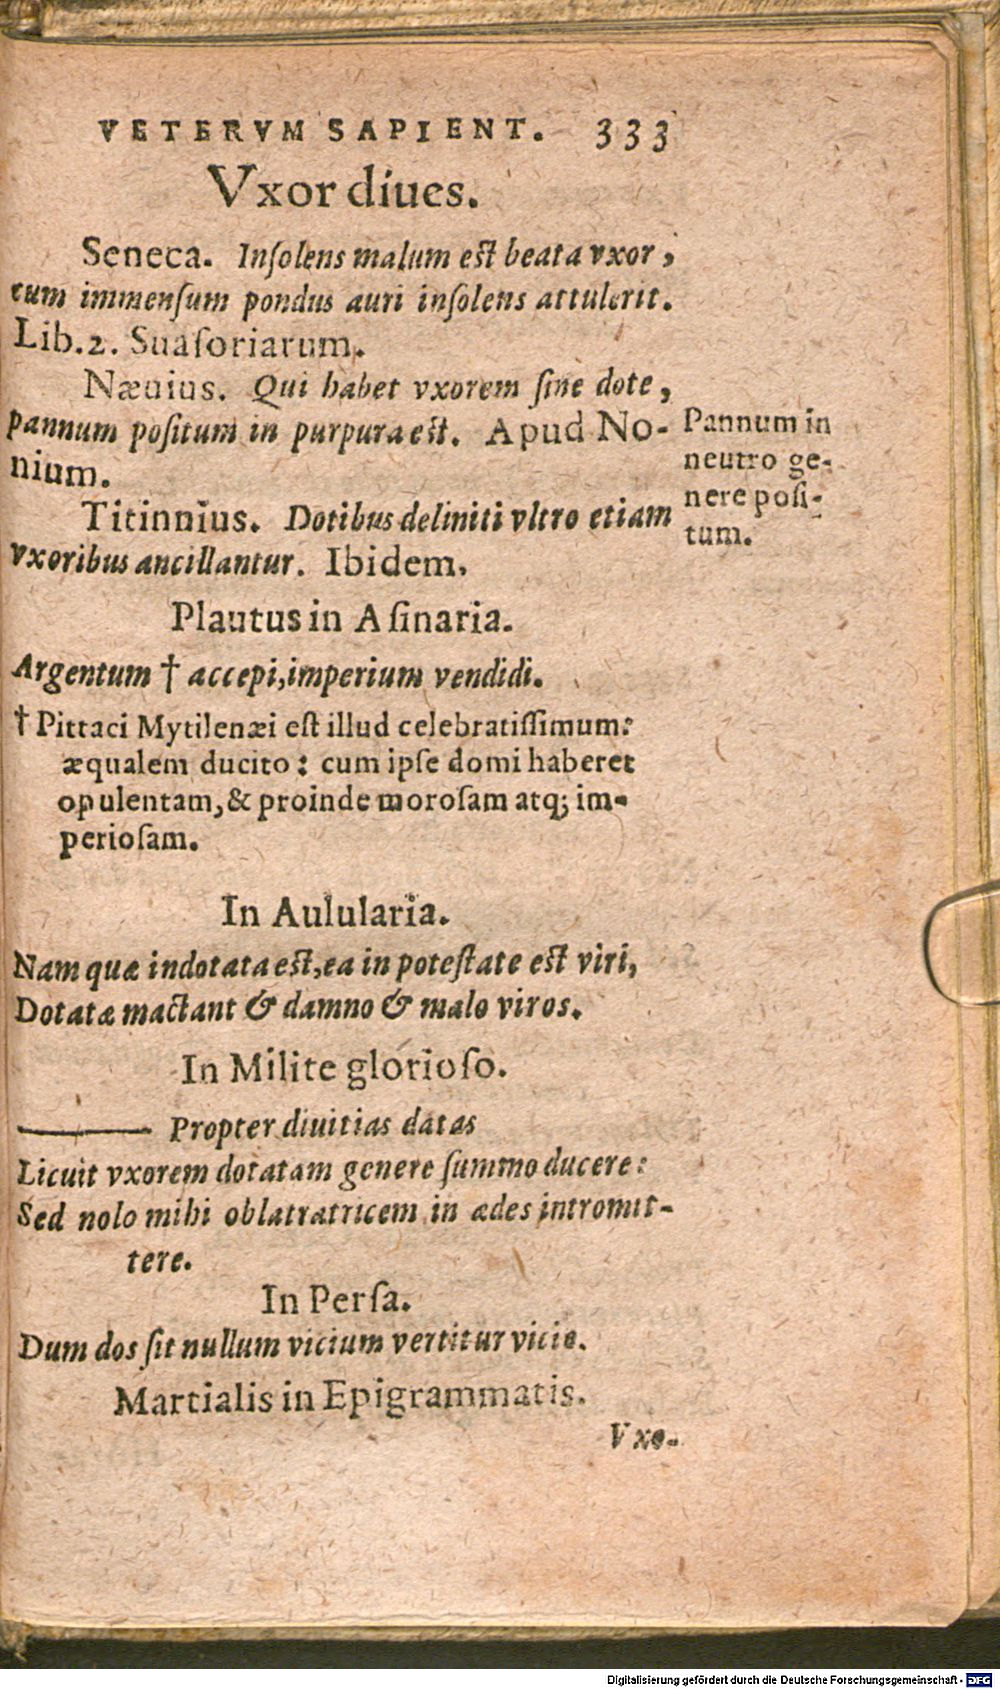 VETERVM SAPIENT. 333
Vxor diues.
Seneca. Inſolens malum est beata vxor,
cum immenſum pondus auri inſolens attulerit.
Lib.2. Suaſoriarum.
Næuius. Qui habet vxorem ſine dote,
pannum poſitum in purpura est. Apud No-
nium.
Pannum in
neutro ge-
nere poſi-
tum.
Titinnius. Dotibus deliniti vltro etiam
vxoribus ancillantur. Ibidem.
Plautus in Aſinaria.
Argentum † accepi, imperium vendidi.
† Pittaci Mytilenæi eſt illud celebratiſſimum:
æqualem ducito: cum ipſe domi haberet
opulentam, & proinde moroſam atq; im-
perioſam.
In Aulularia.
Nam quæ indotata est, ea in poteſtate est viri,
Dotatæ mactant & damno & malo viros.
In Milite glorioſo.
——— Propter diuitias datas
Licuit vxorem dotatam genere ſummo ducere:
Sed nolo mihi oblatratricem in ædes intromit-
tere.
In Perſa.
Dum dos ſit nullum vicium vertitur vicio.
Martialis in Epigrammatis.
Vxo-
Digitalisierung gefördert durch die Deutsche Forschungsgemeinschaft - DFG